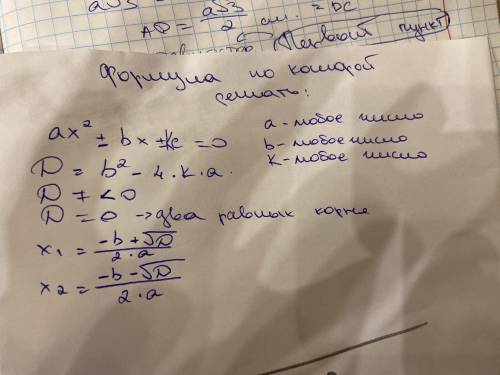 a√3
AD = a√3/2 см. = DC
Первый пункт
Формула по которой
решать:
ax² ± bx ± k = 0
a - любое число
b - любое число
K - любое число
D = b² - 4·k·a.
D ≠ < 0
D = 0 → два равных корня
x₁ = -b + √D / 2·a
x₂ = -b - √D / 2·a